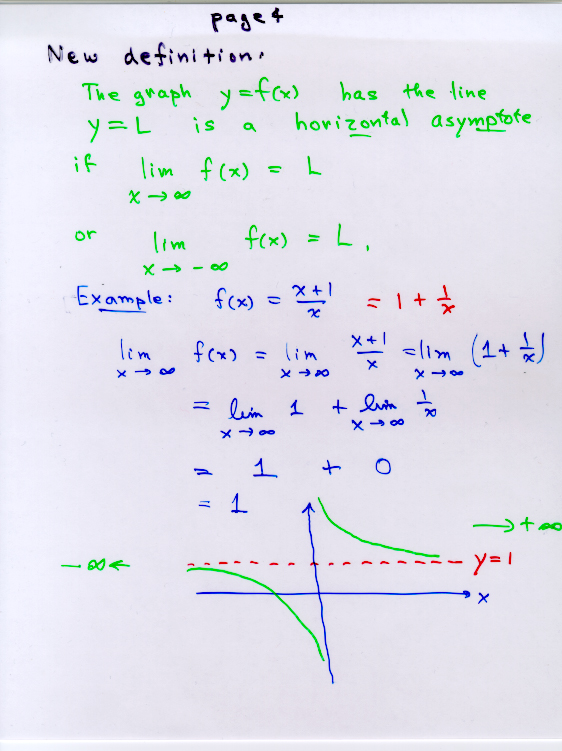 page 4
New definition.
The graph y=f(x) has the line
y=L is a horizontal asymptote
if lim f(x) = L
x→∞
or lim f(x) = L.
x→-∞
Example: f(x) = x+1/x = 1 + 1/x
lim f(x) = lim x+1/x = lim (1+ 1/x)
x→∞ x→∞ x→∞
= lim 1 + lim 1/x
x→∞ x→∞
= 1 + 0
= 1
→+∞
-∞← y=1
x